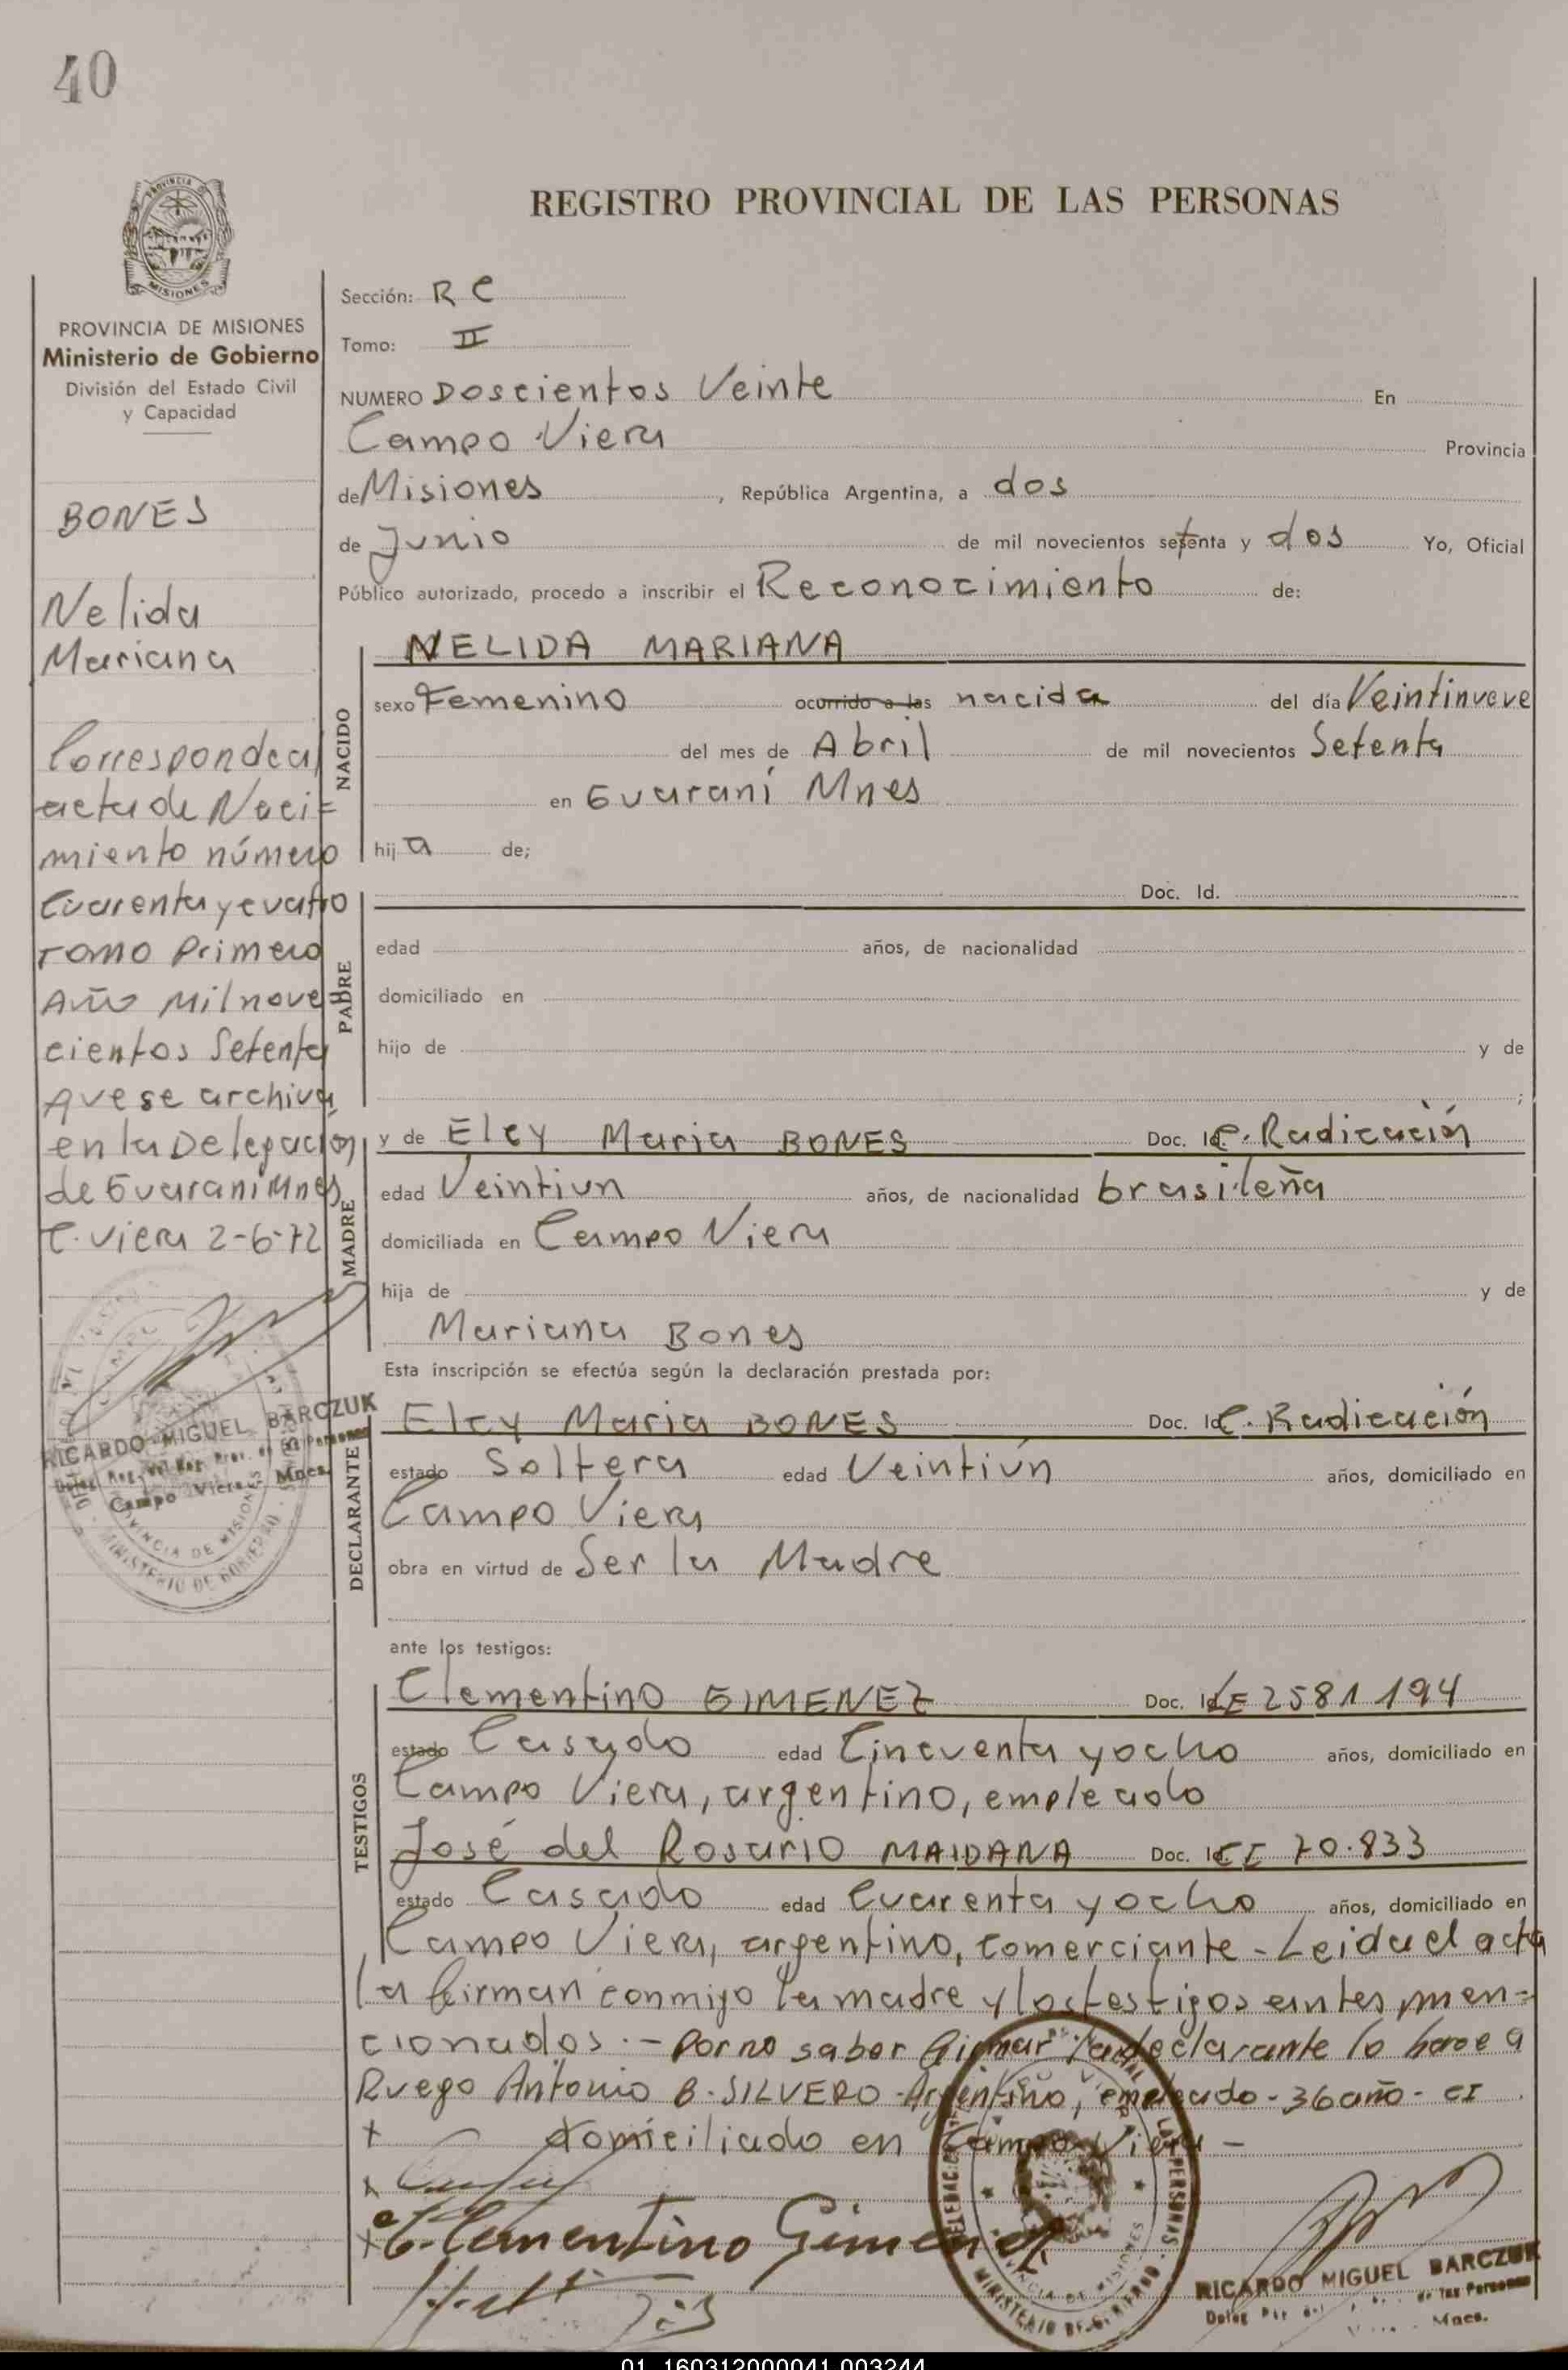 40
REGISTRO PROVINCIAL DE LAS PERSONAS
PROVINCIA DE
MISIONES
PROVINCIA DE MISIONES
Ministerio de Gobierno
División del Estado Civil
y Capacidad
BONES
Nelida
Mariana
Corresponde al
acta de Naci=
miento número
Cuarenta y cuatro
Tomo Primero
Año Mil nove
cientos Setenta
Que se archiva
en la Delegación
de Guarani Mnes
C. Viera 2-6-72
RICARDO MIGUEL BARCZUK
Campo Viera Mnes.
PROVINCIA DE MISIONES
MINISTERIO DE GOBIERNO
Sección: R C
Tomo: II
NUMERO Doscientos Veinte En
Campo Viera Provincia
de Misiones, República Argentina, a dos
de Junio de mil novecientos setenta y dos Yo, Oficial
Público autorizado, procedo a inscribir el Reconocimiento de:
NACIDO
NELIDA MARIANA
sexo Femenino ocurrido a las nacida del día Veintinueve
del mes de Abril de mil novecientos Setenta
en Guaraní Mnes
hija de;
PADRE
Doc. Id.
edad años, de nacionalidad
domiciliado en
hijo de y de
;
MADRE
y de Elcy Maria BONES Doc. Id. C. Radicación
edad Veintiun años, de nacionalidad brasileña
domiciliada en Campo Viera
hija de y de
Mariana Bones
Esta inscripción se efectúa según la declaración prestada por:
DECLARANTE
Elcy Maria BONES Doc. Id. C. Radicación
estado Soltera edad Veintiún años, domiciliado en
Campo Viera
obra en virtud de Ser la Madre
ante los testigos:
TESTIGOS
Clementino GIMENEZ Doc. Id. LE 2581194
estado Casado edad Cincuenta y ocho años, domiciliado en
Campo Viera, argentino, empleado
José del Rosario MAIDANA Doc. Id. CI 70.833
estado Casado edad Cuarenta y ocho años, domiciliado en
Campo Viera, argentino, comerciante - Leida el acta
la firman conmigo la madre y los testigos antes men=
cionados.- Por no saber firmar la declarante lo hace a
Ruego Antonio B. SILVERO - Argentino, empleado - 36 año - CI
x domiciliado en Campo Viera -
x Clementino Gimenez
MINISTERIO DE GOBIERNO
RICARDO MIGUEL BARCZUK
de las Personas
Mnes.
01 160312000041 003244